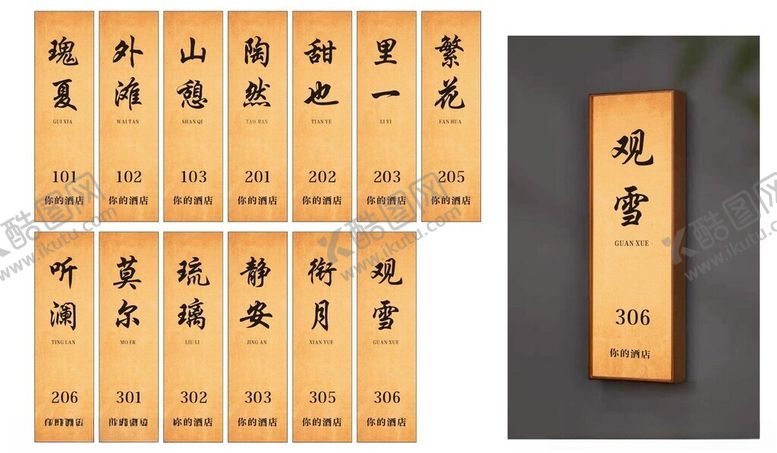 瑰夏
GUI XIA
101
你的酒店
外滩
WAI TAN
102
你的酒店
山憩
SHAN QI
103
你的酒店
陶然
TAO RAN
201
你的酒店
甜也
TIAN YE
202
你的酒店
里一
LI YI
203
你的酒店
繁花
FAN HUA
205
你的酒店
听澜
TING LAN
206
莫尔
MO ER
301
琉璃
LIU LI
302
你的酒店
静安
JING AN
303
你的酒店
衔月
XIAN YUE
305
你的酒店
观雪
GUAN XUE
306
你的酒店
观雪
GUAN XUE
306
你的酒店
酷图网
www.ikutu.com
酷图网
www.ikutu.com
酷图网
www.ikutu.com